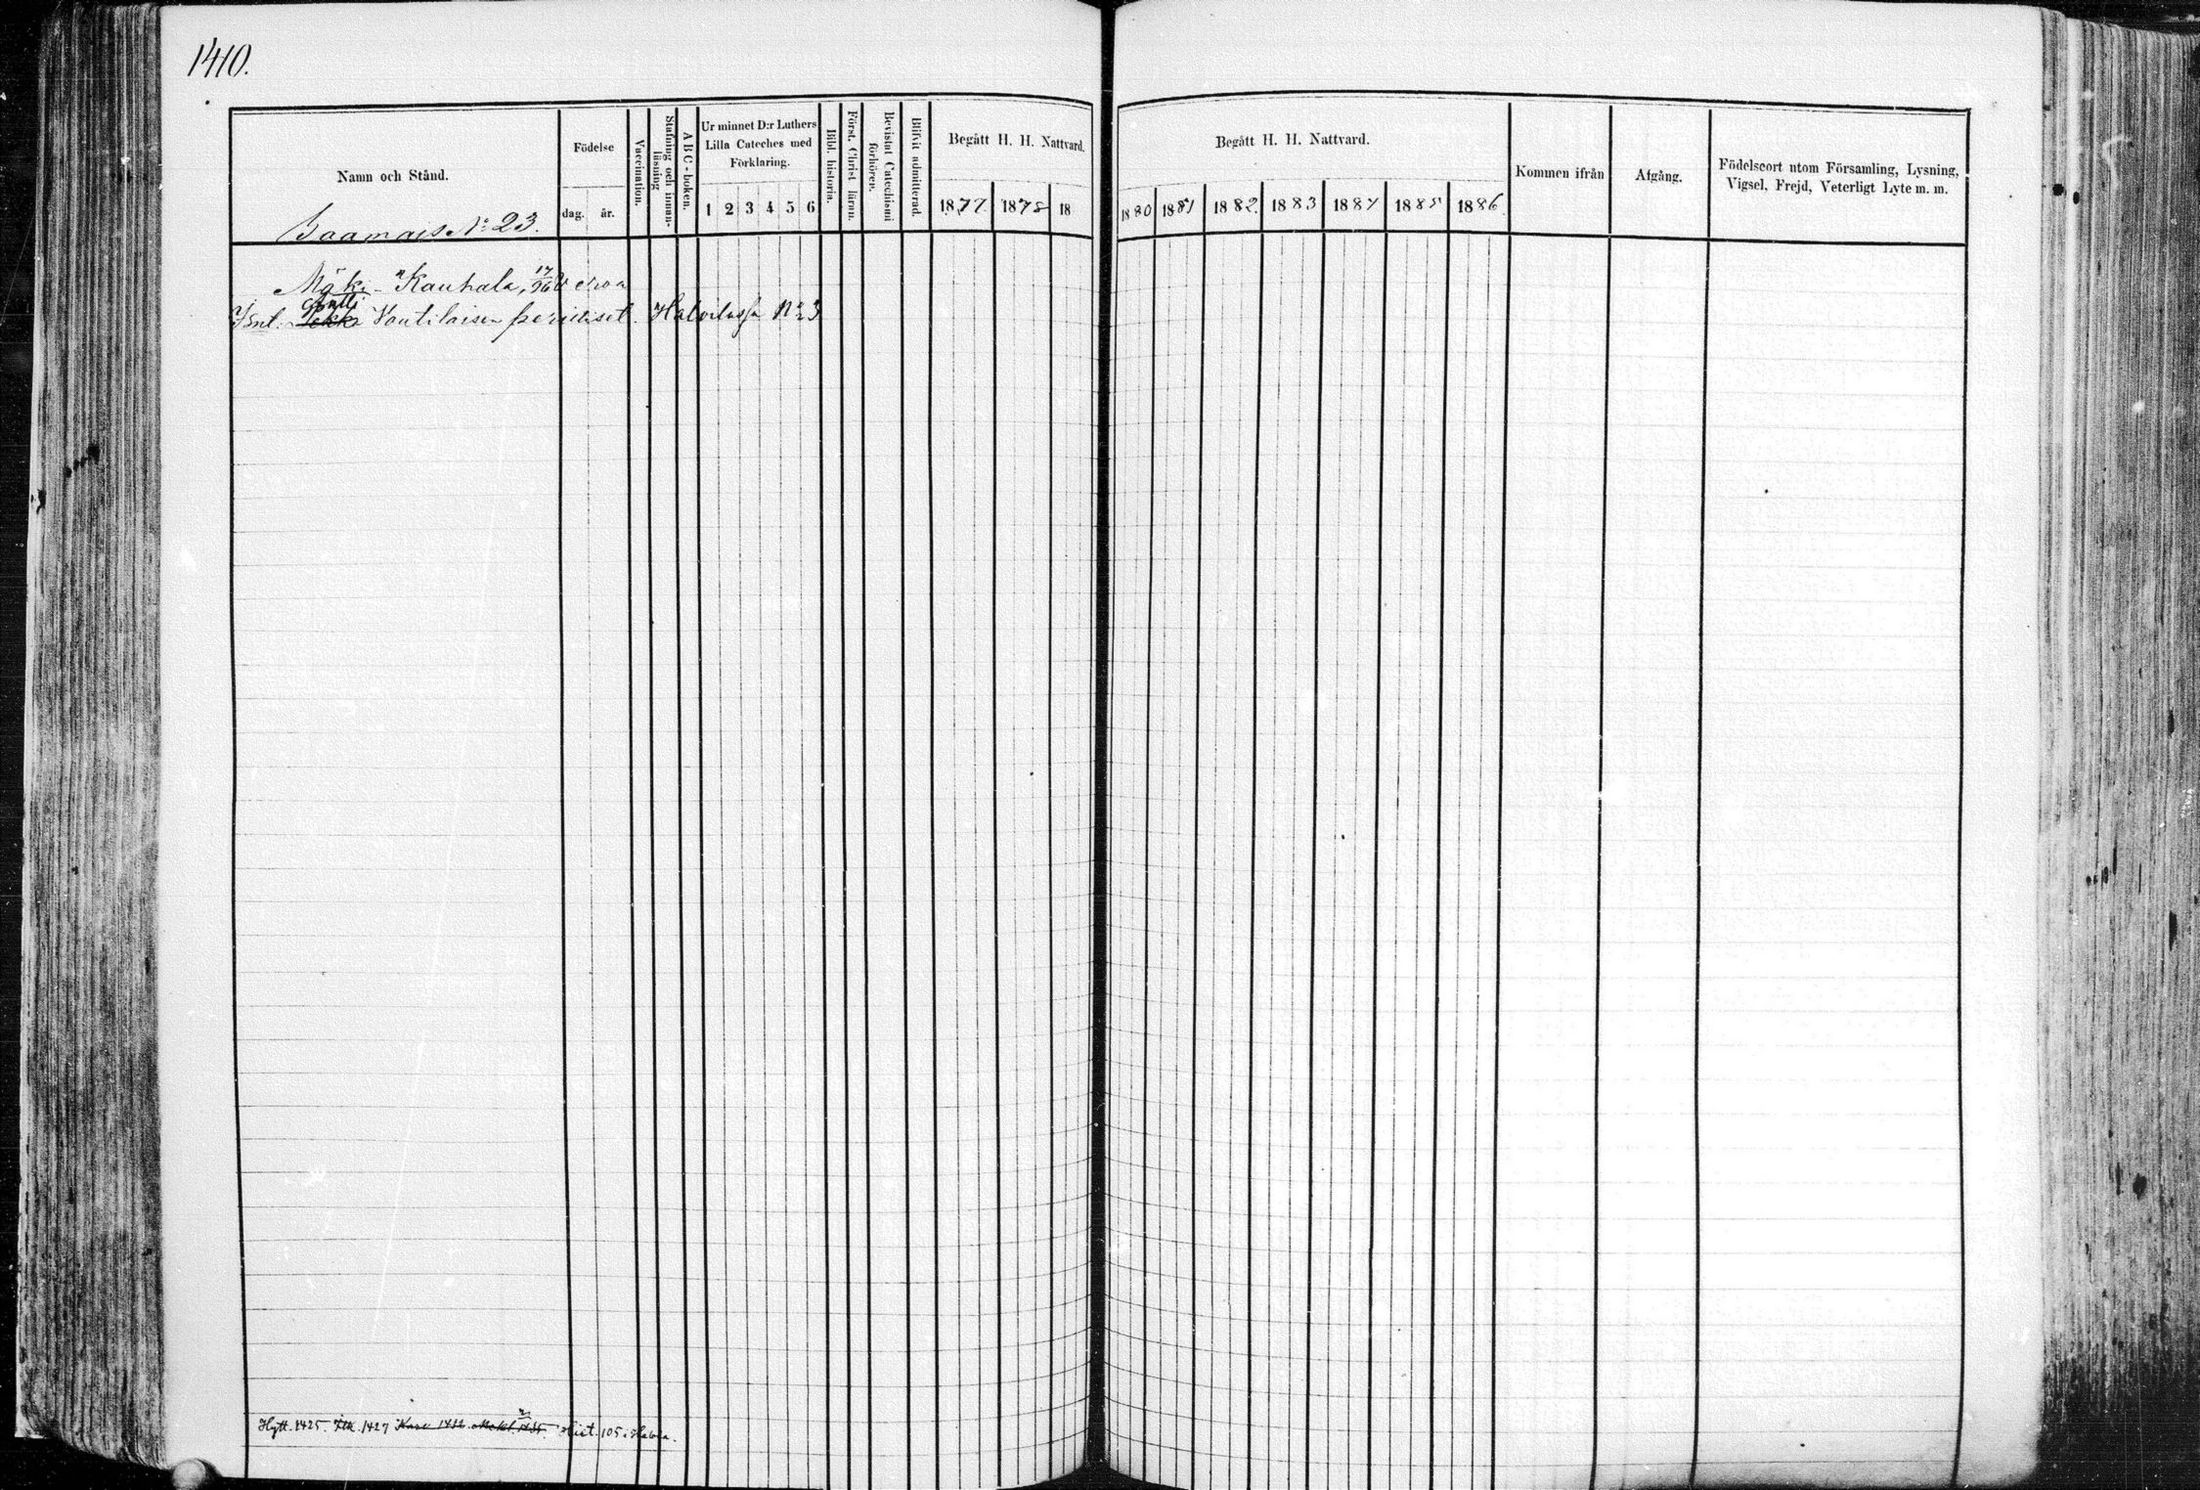 1410.
Namn och Stånd.
Födelse
dag. år.
Vaccination.
Stafning och innan-
läsning
A B C - boken.
Ur minnet D:r Luthers
Lilla Cateches med
Förklaring.
1 2 3 4 5 6
Bibl. historia.
Först. Christ läran.
Bevistat Catechismi
förhören.
Blifvit admitterad.
Begått H. H. Nattvard.
1877 1878 18
Begått H. H. Nattvard.
1880 1881 1882 1883 1884 1885 1886
Kommen ifrån
Afgång.
Födelseort utom Församling, Lysning,
Vigsel, Frejd, Veterligt Lyte m. m.
No 23.
Mäki - Kauhala,
Antti
Pekka Voutilaisen perilliset. No 3
Hytt. 1425. 1427 Hist. 105